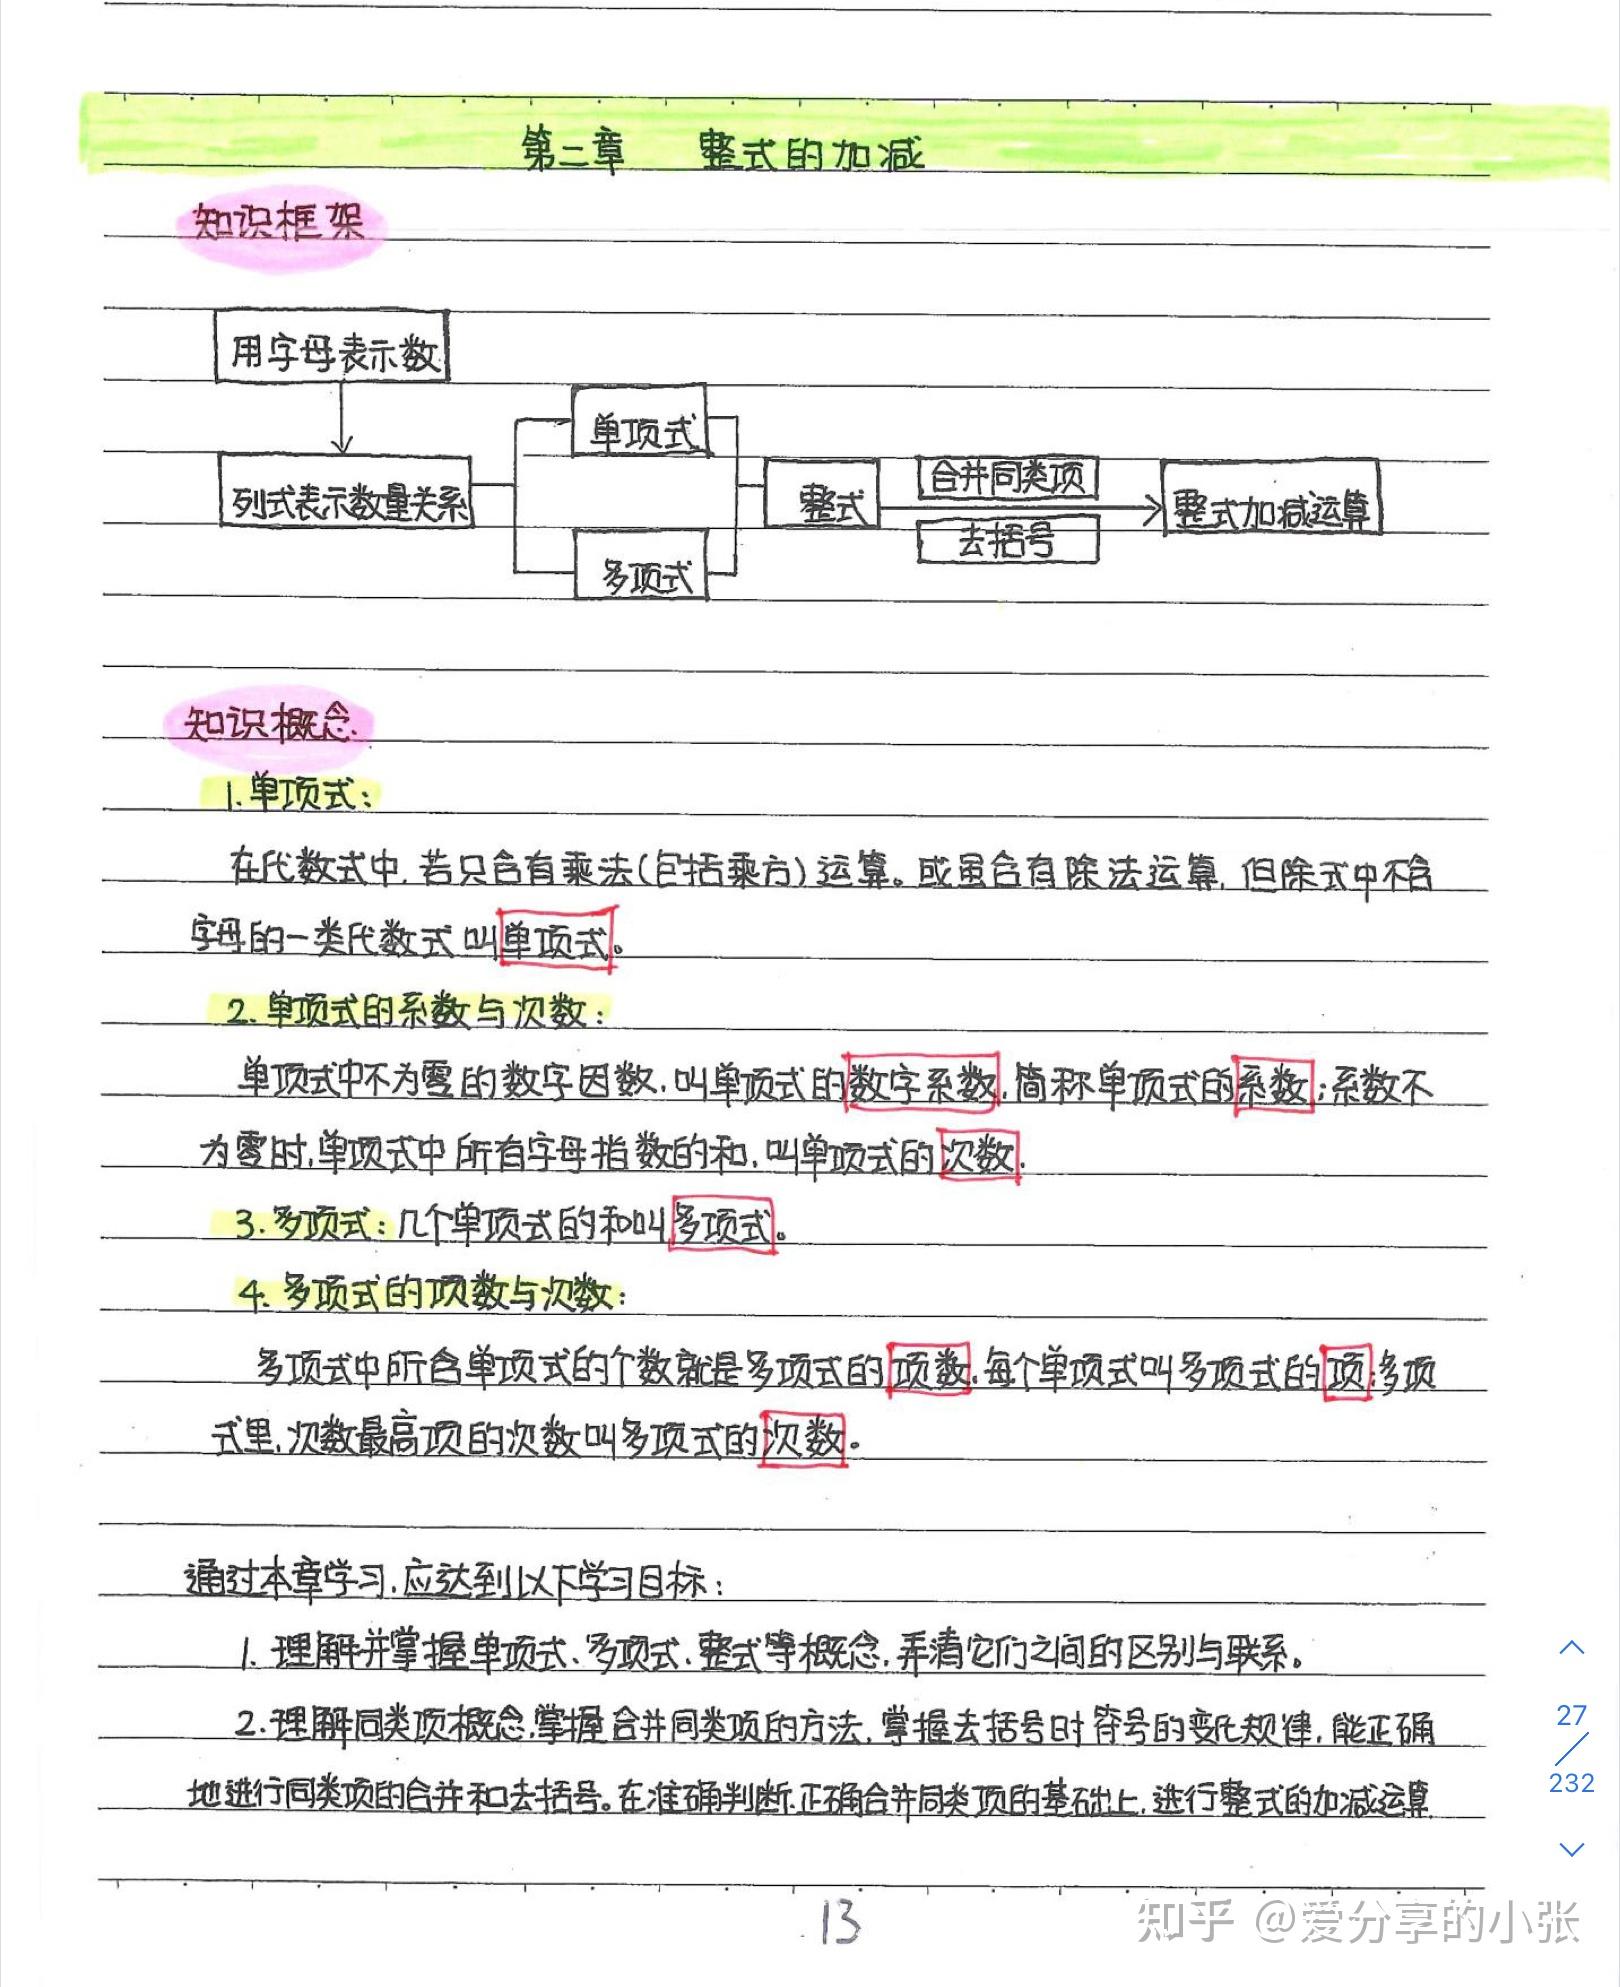 第二章 整式的加减
知识框架
用字母表示数
列式表示数量关系
单项式
多项式
整式
合并同类项
去括号
整式加减运算
知识概念.
1.单项式:
在代数式中,若只含有乘法(包括乘方)运算。或虽含有除法运算,但除式中不含
字母的一类代数式叫单项式。
2.单项式的系数与次数:
单项式中不为零的数字因数,叫单项式的数字系数,简称单项式的系数;系数不
为零时,单项式中所有字母指数的和,叫单项式的次数.
3.多项式:几个单项式的和叫多项式。
4.多项式的项数与次数:
多项式中所含单项式的个数就是多项式的项数,每个单项式叫多项式的项;多项
式里,次数最高项的次数叫多项式的次数。
通过本章学习,应达到以下学习目标:
1.理解并掌握单项式、多项式、整式等概念,弄清它们之间的区别与联系。
2.理解同类项概念,掌握合并同类项的方法,掌握去括号时符号的变化规律,能正确
地进行同类项的合并和去括号。在准确判断、正确合并同类项的基础上,进行整式的加减运算
27
/
232
13
知乎 @爱分享的小张